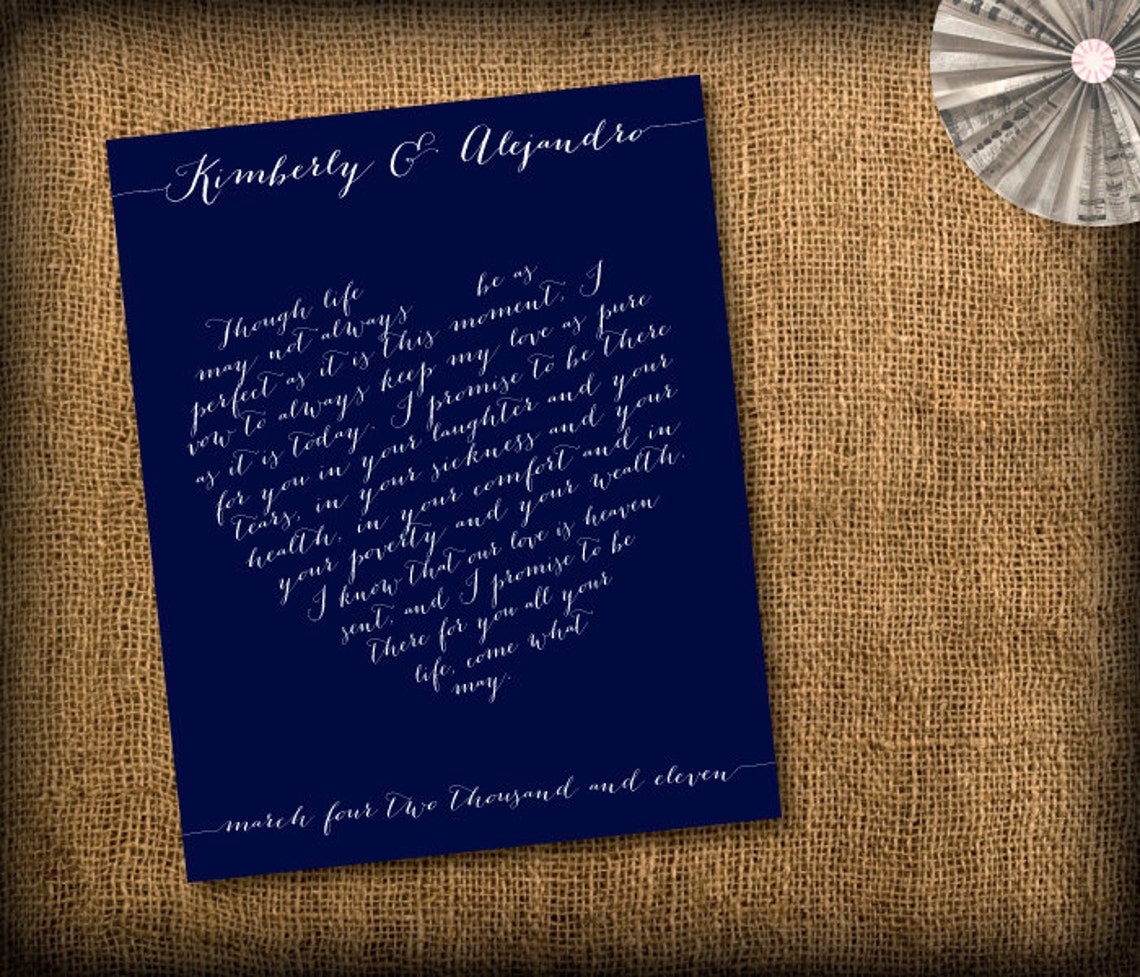 Kimberly & Alejandro
Though life be as
may not always
perfect as it is this moment, I
vow to always keep my love as pure
as it is today. I promise to be there
for you in your laughter and your
tears, in your sickness and your
health, in your comfort and in
your poverty and your wealth.
I know that our love is heaven
sent, and I promise to be
there for you all your
life, come what
may.
march four two thousand and eleven